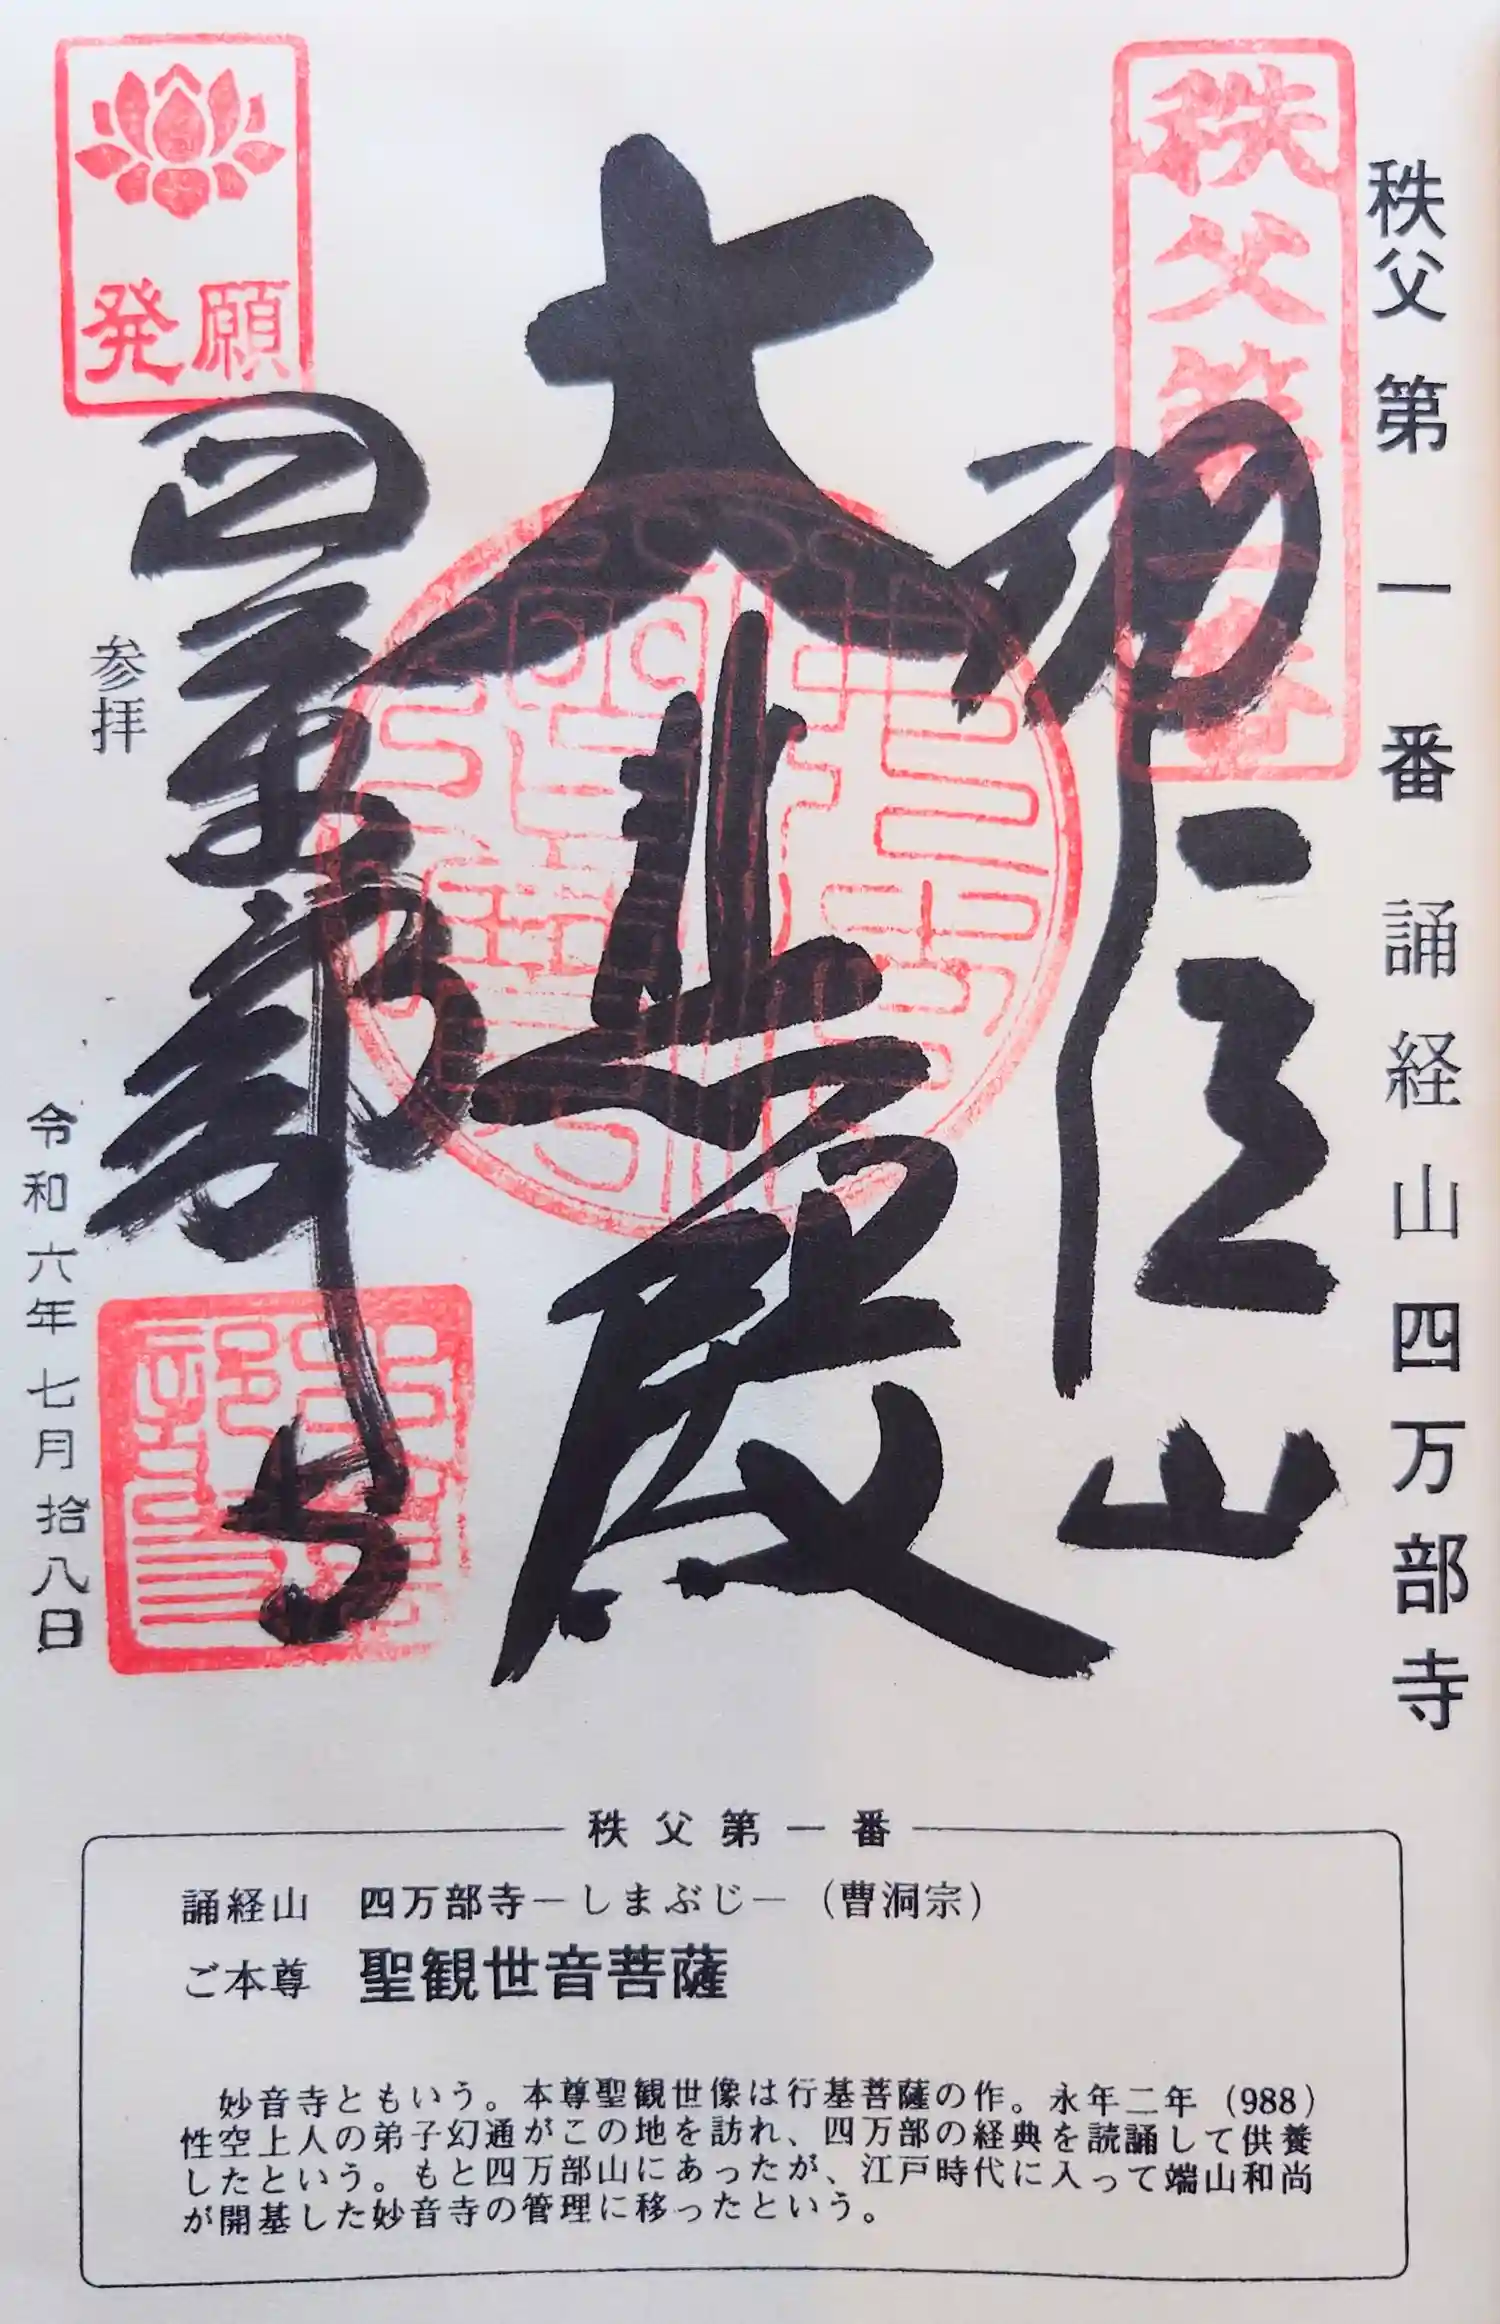 秩父第一番 誦経山四万部寺
秩父第一番
誦経山
大悲殿
発願
四萬部寺
参拝
令和六年七月拾八日
秩父第一番
誦経山 四万部寺―しまぶじ―（曹洞宗）
ご本尊 聖観世音菩薩
妙音寺ともいう。本尊聖観世像は行基菩薩の作。永年二年（988）
性空上人の弟子幻通がこの地を訪れ、四万部の経典を読誦して供養
したという。もと四万部山にあったが、江戸時代に入って端山和尚
が開基した妙音寺の管理に移ったという。